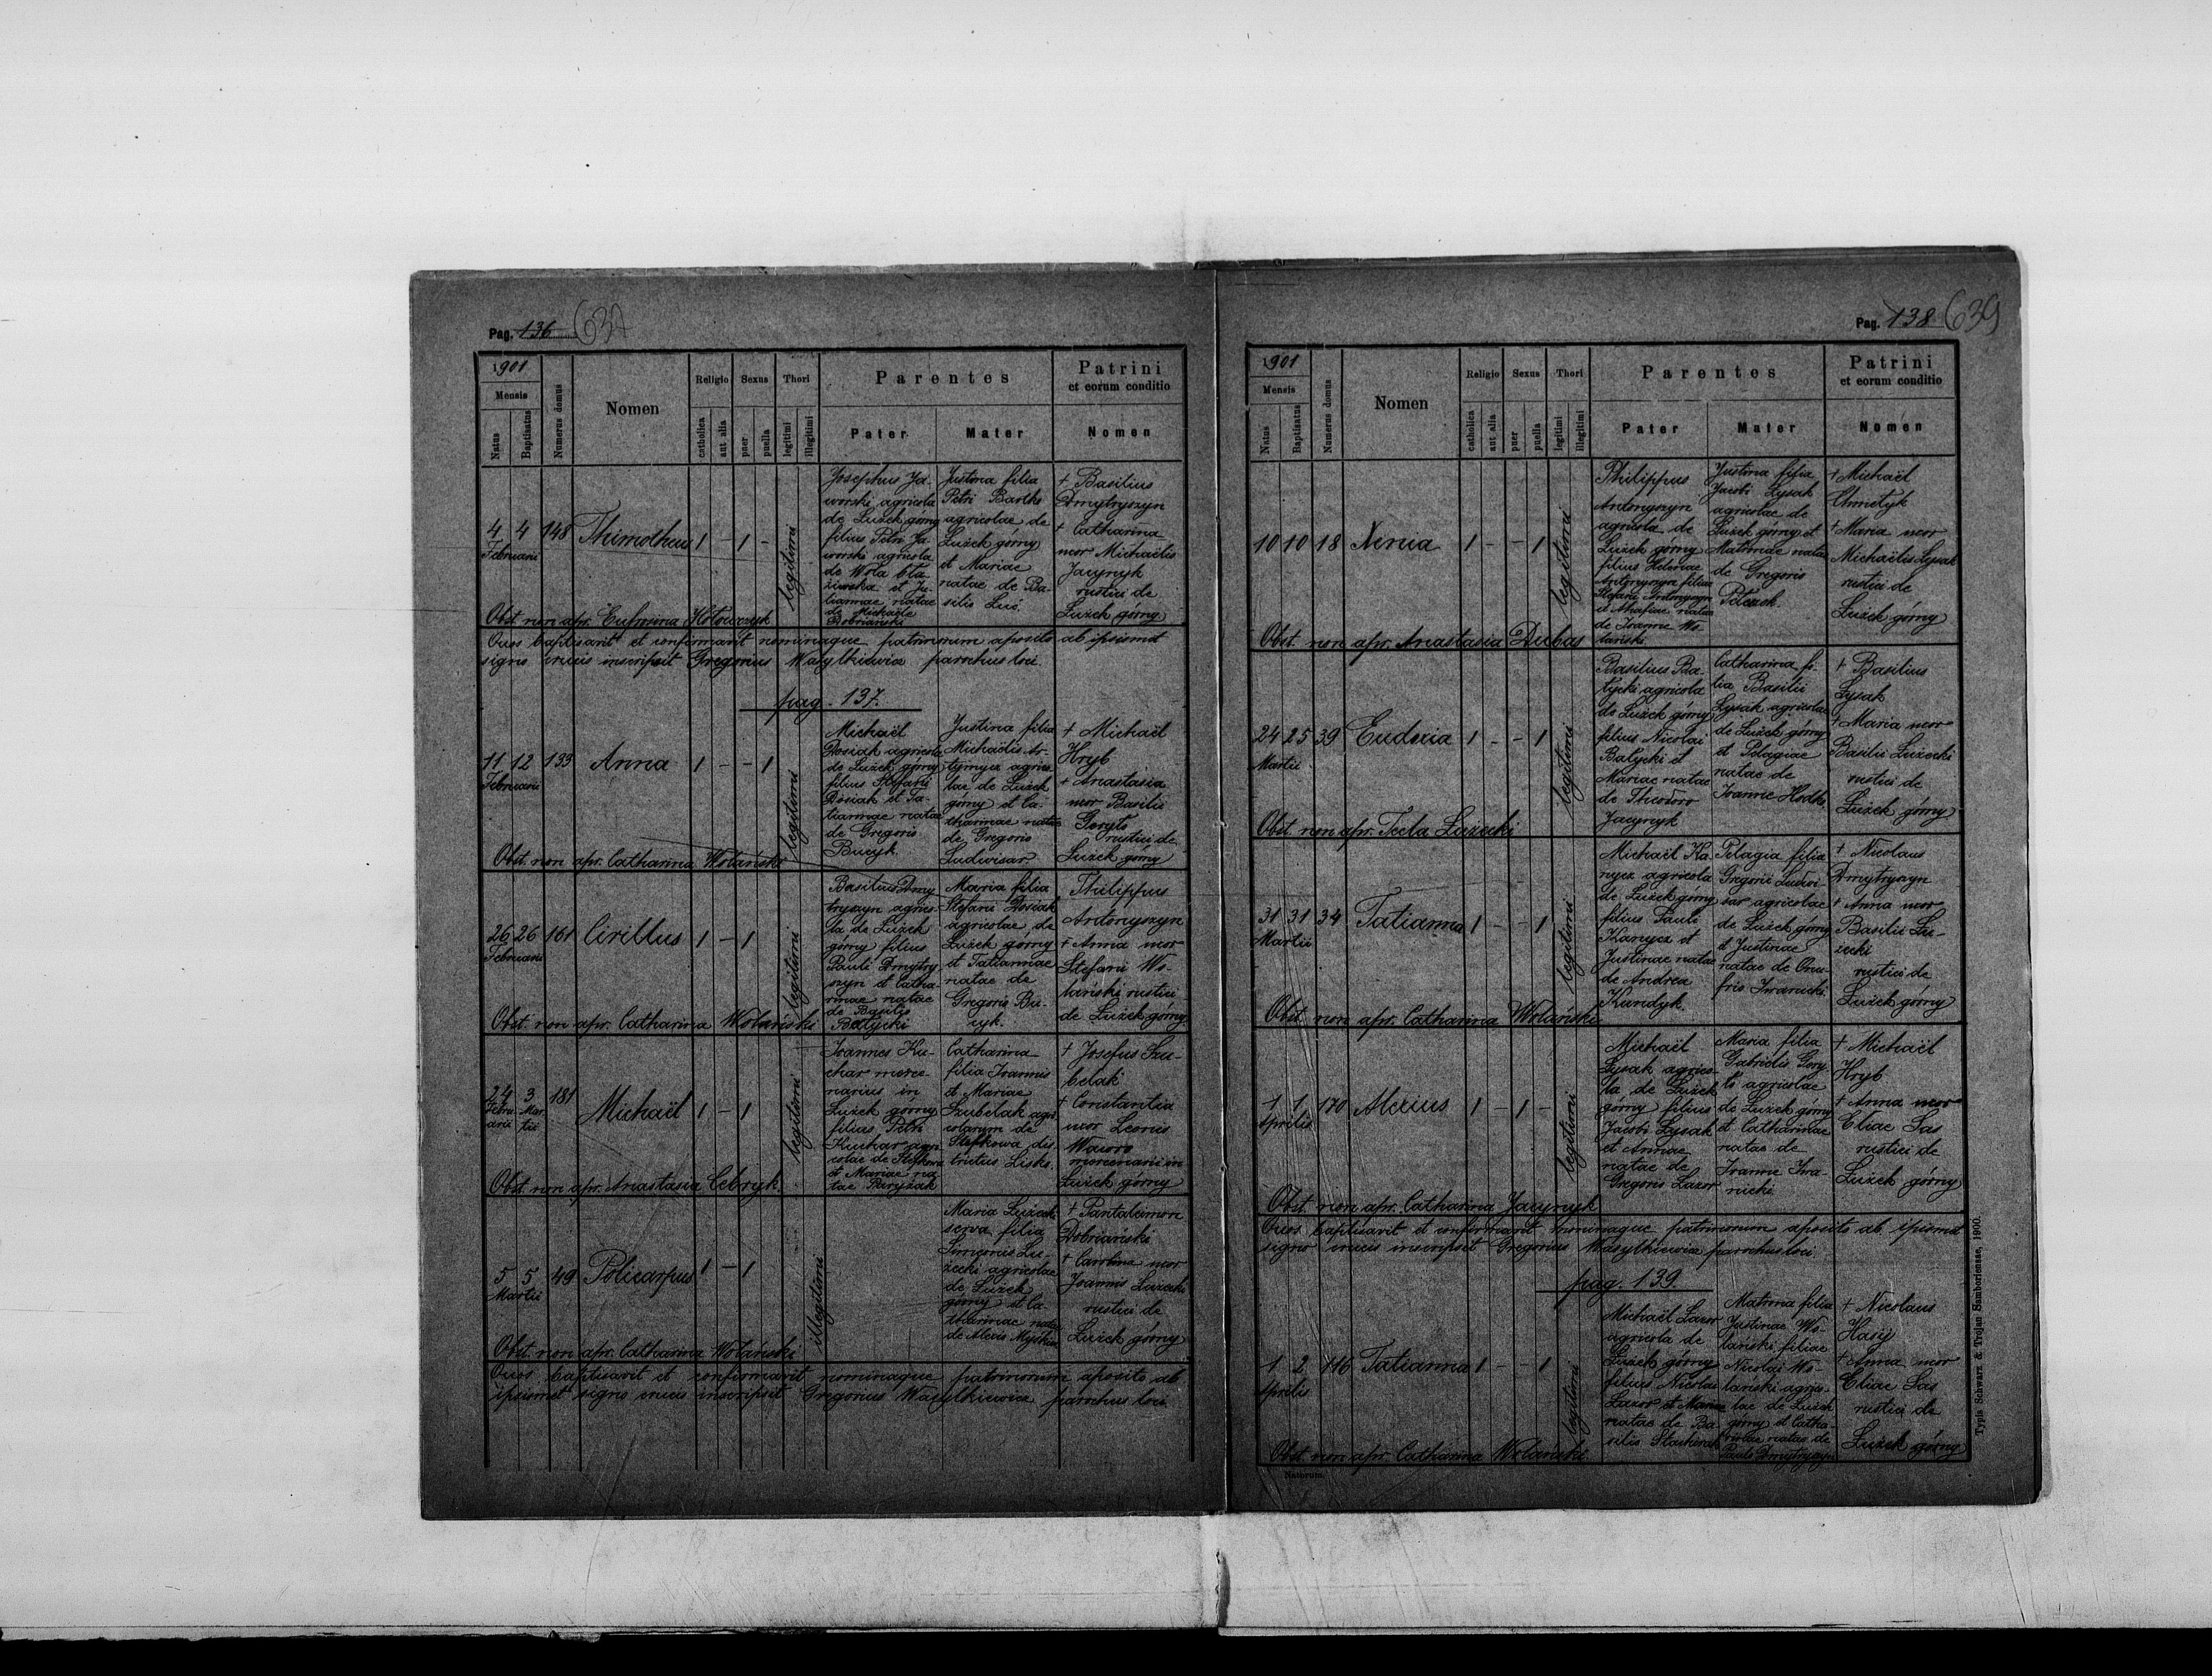 Pag. 136 637
1901
Mensis
Natus
Baptisatus
Numerus domus
Nomen
Religio
catholica
aut alia
Sexus
puer
puella
Thori
legitimi
illegitimi
Parentes
Pater
Mater
Patrini
et eorum conditio
Nomen
4 4 148 Thimotheus 1 - 1 -
Februarii
legitimi
Josephus Ja-
worski agricola
de Łużek górny
filius Petri Ja-
worski agricola
de Wola bła-
żiowska et Ju-
liannae natae
de Michaële
Dobriański
Justina filia
Petri Bartho
agricolae de
Łużek górny
et Mariae
natae de Ba-
silio Luć
† Basilius
Dmytryszyn
† Catharina
uxor Michaëlis
Jacynyk
rustici de
Łużek górny
Obst. non apr. Eufrosina Hołowczyk
Quos baptisavit et confirmavit nominaque patrinorum aposito ab ipsismet
signo crucis inscripsit Gregorius Wasylkiewicz parochus loci.
pag. 137.
11 12 133 Anna 1 - - 1
Februarii
legitimi
Michaël
Dosiak agricola
de Łużek górny
filius Stefani
Dosiak et Ta-
tiannae natae
de Gregorio
Bucyk
Justina filia
Michaëlis
agrico-
lae de Łużek
górny et Ca-
tharinae natae
de Gregorio
Ludwisar
† Michaël
Hryb
† Anastasia
uxor Basilii
Goryto
rustici de
Łużek górny
Obst. non apr. Catharina Wołański
26 26 161 Cirillus 1 - 1
Februarii
legitimi
Basilius Dmy-
tryszyn agrico-
la de Łużek
górny filius
Pauli Dmytry-
szyn et Catha-
rinae natae
de Basilio
Batycki
Maria filia
Stefani Dosiak
agricolae de
Łużek górny
et Tatiannae
natae de
Gregorio Bu-
cyk.
Philippus
Antonyszyn
† Anna uxor
Stefani Wo-
łański rustici
de Łużek górny
Obst. non apr. Catharina Wołański
24 3 181 Michaël 1 - 1
Febru- Mar-
arii tii
legitimi
Joannes Ku-
char merce-
narius in
Łużek górny
filius Petri
Kuchar agri-
colae de Stefkowa
et Mariae na-
tae Paryżak
Catharina
filia Joannis
et Mariae
Szubelak agri-
colarum de
Stefkowa dis-
trictus Lisko.
† Josefus Szu-
belak
† Constantia
uxor Leonis
Waworo
mercenarii in
Łużek górny
Obst. non apr. Anastasia Cebryk.
5 5 49 Policarpus 1 - 1
Martii
illegitimi
Maria Łużecki
serva filia
Simeonis Łu-
żecki agricolae
de Łużek
górny et Ca-
tharinae natae
de Alexio
† Pantaleimon
Dobriański
† Carolina uxor
Joannis Łużecki
rustici de
Łużek górny
Obst. non apr. Catharina Wołański
Quos baptisavit et confirmavit nominaque patrinorum aposito ab
ipsismet signo crucis inscripsit Gregorius Wasylkiewicz parochus loci.
Pag. 138 639
1901
Mensis
Natus
Baptisatus
Numerus domus
Nomen
Religio
catholica
aut alia
Sexus
puer
puella
Thori
legitimi
illegitimi
Parentes
Pater
Mater
Patrini
et eorum conditio
Nomen
10 10 18 Xenia 1 - - 1
legitimi
Philippus
Antonyszyn
agricola de
Łużek górny
filius Helenae
Antonyszyn filiae
Stefani Antonyszyn
et Ahafiae natae
de Joanne Wo-
łański
Justina filia
Jacobi Łysak
agricolae de
Łużek górny et
Matronae natae
de Gregorio
Petczak.
† Michaël
Chmetyk
† Maria uxor
Michaëlis Łysak
rustici de
Łużek górny
Obst. non apr. Anastasia Dubas
24 25 39 Eudoxia 1 - - 1
Martii
legitimi
Basilius Ba-
tycki agricola
de Łużek górny
filius Nicolai
Batycki et
Mariae natae
de Theodoro
Jacynyk
Catharina fi-
lia Basilii
Łysak agricolae
de Łużek górny
et Pelagiae
natae de
Joanne Hodko
† Basilius
Łysak
† Maria uxor
Basilii Łużecki
rustici de
Łużek górny
Obst. non apr. Tecla Łużecki
31 31 34 Tatianna 1 - - 1
Martii
legitimi
Michaël Ka-
nycz agricola
de Łużek górny
filius Pauli
Kanycz et
Justinae natae
de Andrea
Kundyk.
Pelagia filia
Gregorii Ludwi-
sar agricolae
de Łużek górny
et Justinae
natae de Onu-
frio Iwanicki.
† Nicolaus
Dmytryszyn
† Anna uxor
Basilii Łu-
żecki
rustici de
Łużek górny
Obst. non apr. Catharina Wołański
1 1 170 Alexius 1 - 1 -
Aprilis
legitimi
Michaël
Łysak agrico-
la de Łużek
górny filius
Jacobi Łysak
et Annae
natae de
Gregorio Lazor
Maria filia
Gabrielis Gory-
to agricolae
de Łużek górny
et Catharinae
natae de
Joanne Iwa-
nicki
† Michaël
Hryb
† Anna uxor
Eliae Sas
rustici de
Łużek górny
Obst. non apr. Catharina Jacynyk
Quos baptisavit et confirmavit nominaque patrinorum aposito ab ipsismet
signo crucis inscripsit Gregorius Wasylkiewicz parochus loci.
pag. 139.
1 2 116 Tatianna 1 - - 1
Aprilis
legitimi
Michaël Lazor
agricola de
Łużek górny
filius Nicolai
Lazor et Mariae
natae de Ba-
silio Stachiwak
Matrona filia
Justinae Wo-
łański filiae
Nicolai Wo-
łański agrico-
lae de Łużek
górny et Catha-
rinae natae de
Paulo Dmytryszyn
† Nicolaus
Hasij
† Anna uxor
Eliae Sas
rustici de
Łużek górny
Obst. non apr. Catharina Wołański.
Natorum.
Typis Schwarz & Trojan Samboriense, 1900.